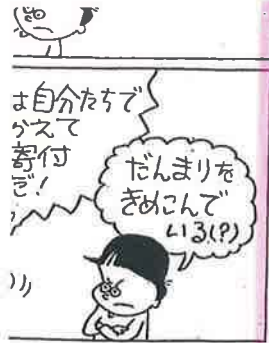 自分たちで
えて
寄付
だんまりを
きめこんで
いる(?)